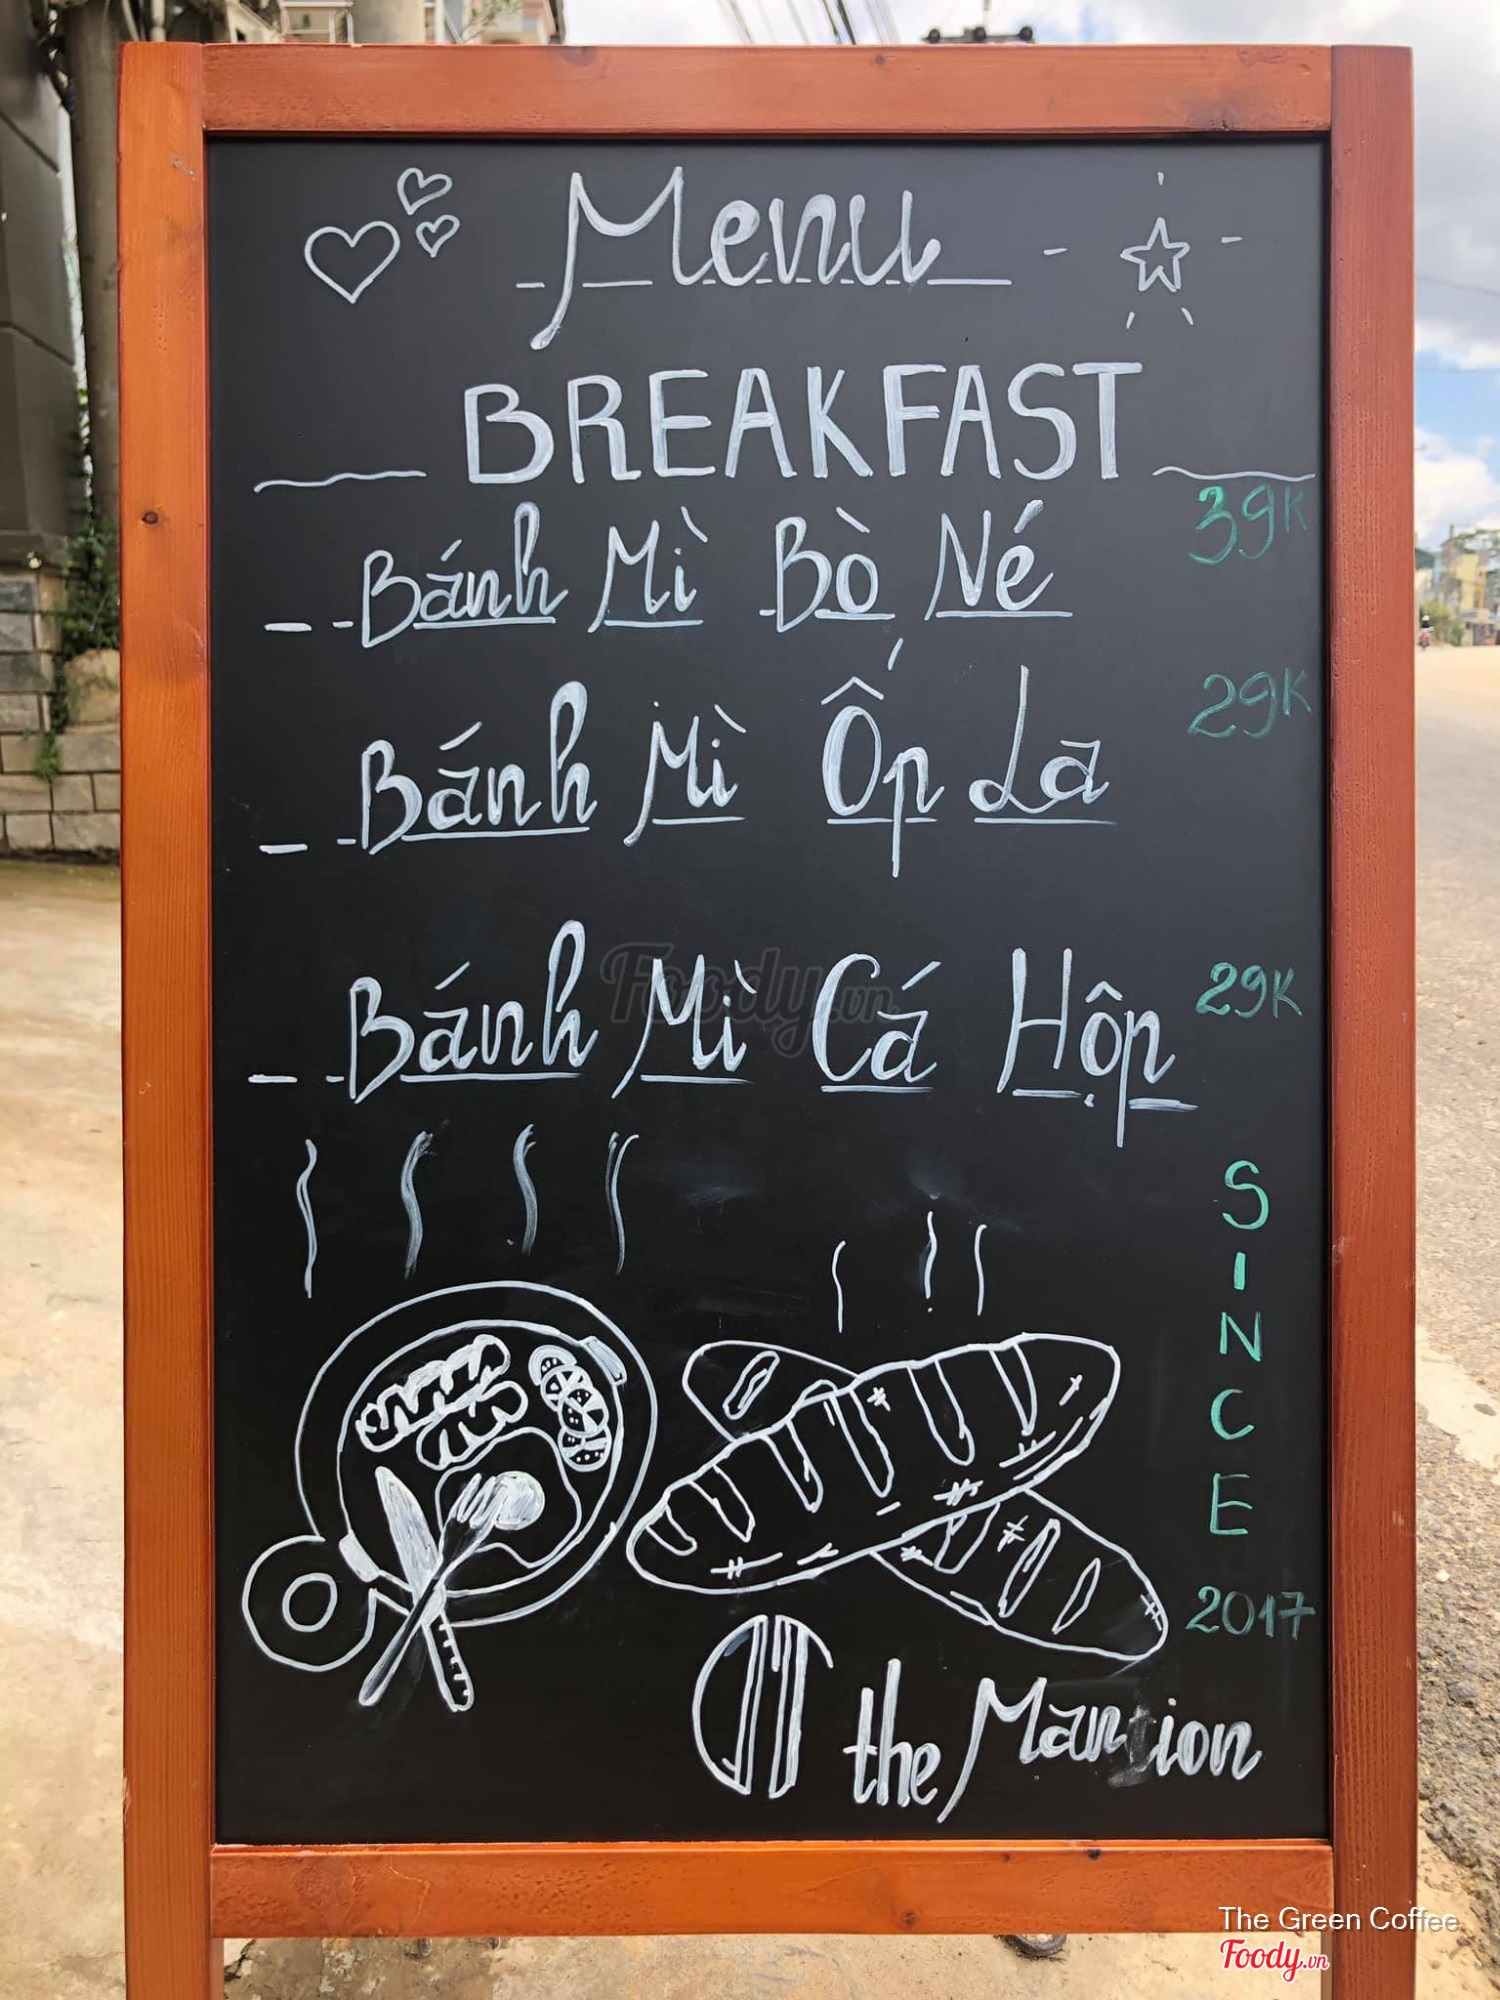 Menu
BREAKFAST
Bánh Mì Bò Né 39K
Bánh Mì Ốp La 29K
Bánh Mì Cá Hộp 29K
SINCE
2017
the Mansion
Foody.vn
The Green Coffee
Foody.vn